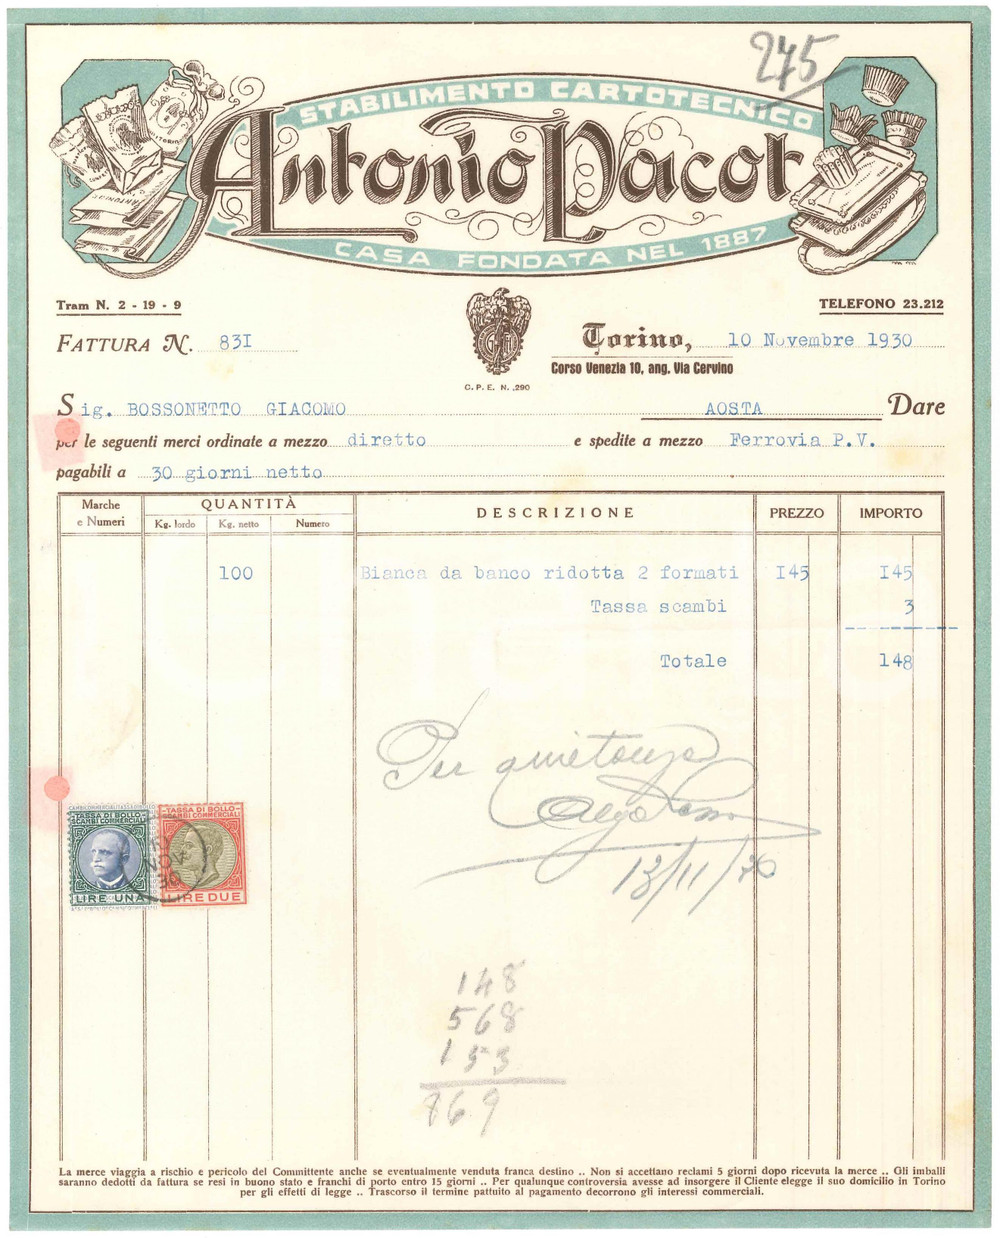 245
STABILIMENTO CARTOTECNICO
Antonio Pacot
CASA FONDATA NEL 1887
Tram N. 2 - 19 - 9
TELEFONO 23.212
FATTURA N. 831
Torino, 10 Novembre 1930
Corso Venezia 10, ang. Via Cervino
C. P. E. N. 290
Sig. BOSSONETTO GIACOMO AOSTA Dare
per le seguenti merci ordinate a mezzo diretto e spedite a mezzo Ferrovia P.V.
pagabili a 30 giorni netto
Marche e Numeri QUANTITÀ DESCRIZIONE PREZZO IMPORTO
Kg. lordo Kg. netto Numero
100 Bianca da banco ridotta 2 formati 145 145
Tassa scambi 3
Totale 148
Per quietanza
13/11/30
TASSA DI BOLLO
SCAMBI COMMERCIALI
LIRE UNA
TASSA DI BOLLO
SCAMBI COMMERCIALI
LIRE DUE
148
568
153
869
La merce viaggia a rischio e pericolo del Committente anche se eventualmente venduta franca destino .. Non si accettano reclami 5 giorni dopo ricevuta la merce .. Gli imballi
saranno dedotti da fattura se resi in buono stato e franchi di porto entro 15 giorni .. Per qualunque controversia avesse ad insorgere il Cliente elegge il suo domicilio in Torino
per gli effetti di legge .. Trascorso il termine pattuito al pagamento decorrono gli interessi commerciali.